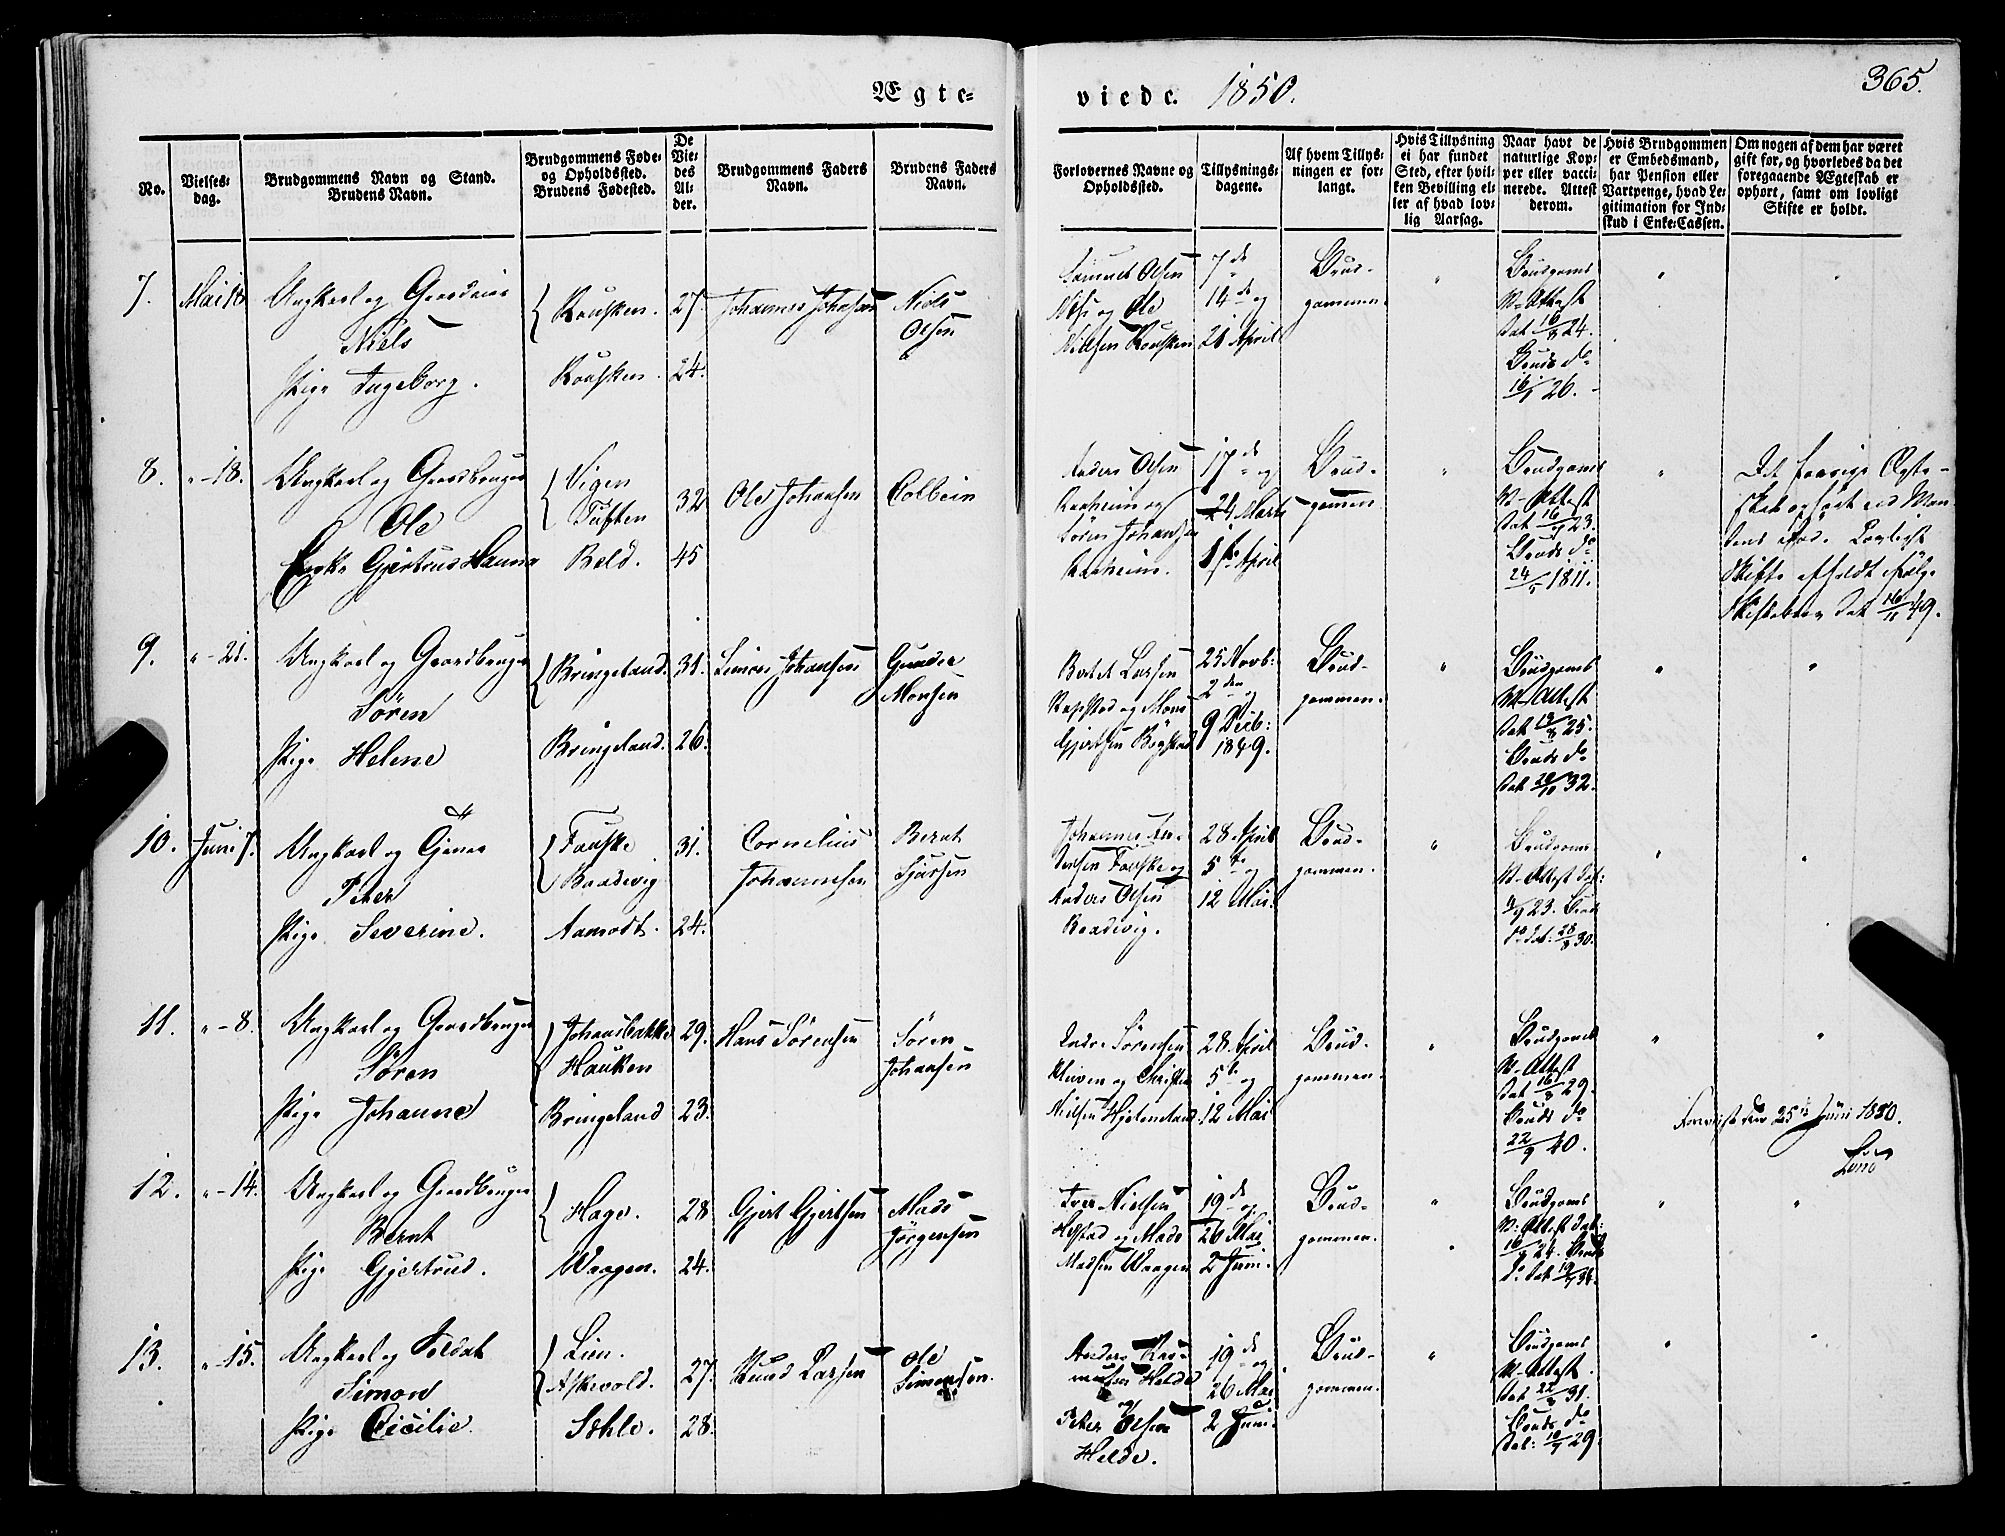 Ægte=
viede. 1850.
365.
No.
Vielses=
dag.
Brudgommens Navn og Stand.
Brudens Navn.
Brudgommens Føde=
og Opholdssted.
Brudens Fødested.
De
Vie=
des
Al=
der.
Brudgommens Faders
Navn.
Brudens Faders
Navn.
Forlovernes Navne og
Opholdssted.
Tillysnings=
dagene.
Af hvem Tillys=
ningen er for=
langt.
Hvis Tillysning
ei har fundet
Sted, efter hvil=
ken Bevilling el=
ler af hvad lov=
lig Aarsag.
Naar havt de
naturlige Kop=
per eller vacci=
nerede. Attest
derom.
Hvis Brudgommen
er Embedsmand,
har Pension eller
Vartpenge, hvad Le=
gitimation for Ind=
skud i Enke=Cassen.
Om nogen af dem har været
gift før, og hvorledes da det
foregaaende Ægteskab er
ophørt, samt om lovligt
Skifte er holdt.
7.
Mai
Ungkarl og
Niels
Pige Ingeborg.
Rousken.
Rousken.
27.
24.
Johannes Johnsen
Niels
Olsen
Samuel Olsen
og Ole
Nielsen Rousken
7de
14de og
21 April
Brud-
gommen.
Brudgoms
V-Attest
dat 16/8 24.
Bruds do
16/ 26.
8.
"-18.
Ungkarl og Gaardbruger
Ole
Enke Gjertrud Hanna
Vigen
Tuften
Beld.
32
45
Ole Johansen
Colbein
Anders Olsen
Aaheim og
Sören Johansen
Aaheim.
17de og
24 Marts
1ste April
Brud-
gommen
Brudgoms
V-Attest
dat 16/9 23.
Bruds do
24/5 1811.
Det forrige Ægte-
skab ophört ved Man-
dens död. Lovligt
Skifte afholdt ifølge
Skiftebrev dat 16/11 49.
9.
"-21.
Ungkarl og Gaardbruger
Sören
Pige Helene
Bringeland.
Bringeland.
31.
26.
Simon Johansen
Gunder
Monsen
Bertel Larsen
og Mons
Gjertsen
25 Novb:
2den og
9 Decb:
1849.
Brud-
gommen.
Brudgoms
V-Attest
dat 19/8 25.
Bruds do
dat 20/10 32.
10.
Juni 7.
Ungkarl og
Peter
Pige Severine.
Fauske
Baadevig
Aamodt.
31.
24.
Cornelius
Johannesen
Bernt
Sjursen
Johannes An-
dersen Fauske og
Anders Olsen
Baadvig.
28 April
5te og
12 Mai.
Brud-
gommen.
Brudgoms
V-Attest dat:
/9 23. Bruds
do dat: 28/8 30.
11.
"-8.
Ungkarl og Gaardbruger
Sören
Pige Johanne
Johansbakke
Hauken
Bringeland
29.
23.
Hans Sörensen
Sören
Johansen
Andre Sörensen
og Christen
Nielsen Hjelmeland
28 April
5te og
12 Mai
Brud-
gommen.
Brudgoms
V-Attest
dat 16/8 29.
Bruds do
22/9 40.
Foreviist den 25de Juni 1850.
12.
"-14.
Ungkarl og Gaardbruger
Bernt
Pige Gjertrud.
Hage.
Waagen.
28
24.
Gjert Gjertsen
Mads
Jörgensen
Iver Nielsen
og Mads
Madsen Waagen
19de og
26 Mai
2 Juni.
Brud-
gommen.
Brudgoms
V: Attest dat:
16/9 24. Bruds
do dat 19/
13.
"-15.
Ungkarl og Soldat
Simon
Pige Cicilie.
Lien.
Askevold.
Söhle.
27.
28.
Knud Larsen
Ole
Simonsen.
Anders Ras-
musen Helde
og
Peter Olsen
Helde.
19de og
26 Mai
2 Juni.
Brud-
gommen.
Brudgoms
V-Attest.
dat 22/8 31.
Bruds do
dat: 10/9 29.